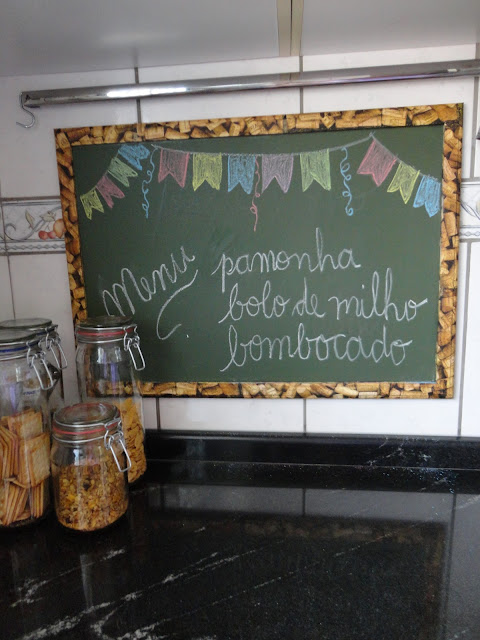 Menu
pamonha
bolo de milho
bombocado